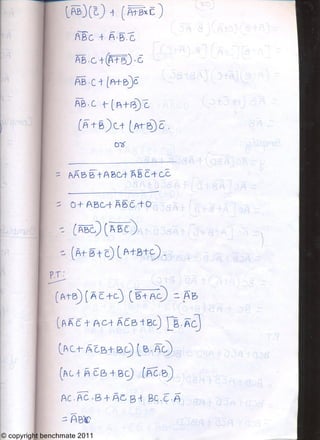 (A̅B̅)(C̅) + (A̅+̅B̅×C̅)
A̅B̅C + A̅·B̅·C̅
A̅B̅·C + (A̅+̅B̅)·C̅
A̅B̅·C + (A+B)C̅
A̅B̅·C + (A+B)C̅
(A̅+B̅)C + (A+B)C̅.
or
= AA̅BB̅+ABC+A̅B̅C̅+CC̅
= 0+ABC+A̅B̅C̅+0
= (A̅B̅C̅)(A̅B̅C̅)
= (A̅+B̅+C̅)(A+B+C).
P.T:
(A+B)(A̅C̅+C)(B̅+̅A̅C̅) = A̅B
(AA̅C̅+AC+A̅C̅B+BC)[B·A̅C̅]
(AC+A̅C̅B+BC)(B·A̅C̅)
(AC+A̅C̅B+BC)(A̅C̅·B)
AC·A̅C̅·B+A̅C̅B+BC·C̅·A̅
= A̅B
© copyright benchmate 2011